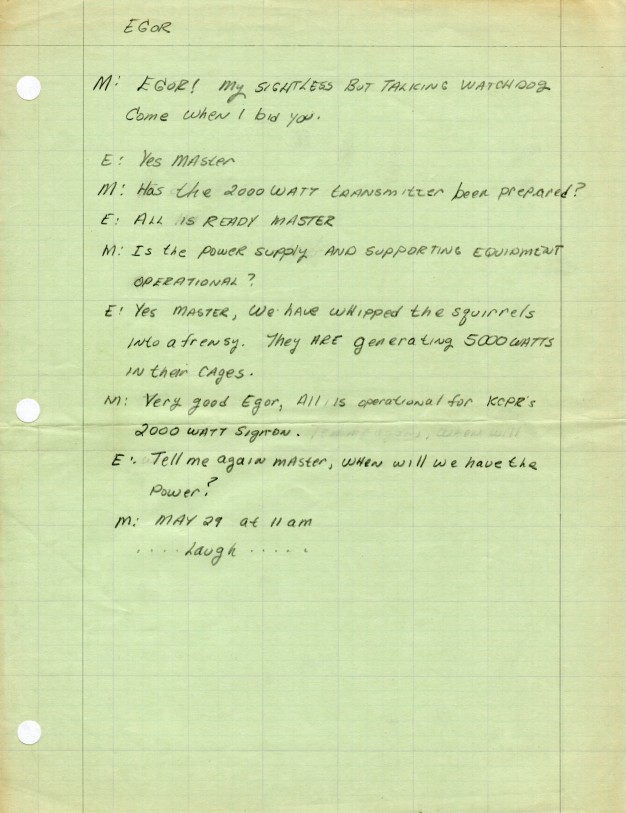 EGOR
M: EGOR! My SIGHTLESS BUT TALKING WATCHDOG
Come when I bid you.
E: Yes MASter
M: Has the 2000 WATT tRANSmitter been prepared?
E: ALL IS READY MASTER
M: Is the power supply AND SUPPORTING EQUIPMENT
OPERATIONAL?
E: Yes MASTER, We have whipped the squirrels
into a frensy. They ARE generating 5000 WATTS
IN their CAges.
M: Very good Egor, All is operational for KCPR's
2000 WATT SignON.
E: Tell me again mAster, when will we have the
Power?
M: MAY 29 at 11 am
.... Laugh .....